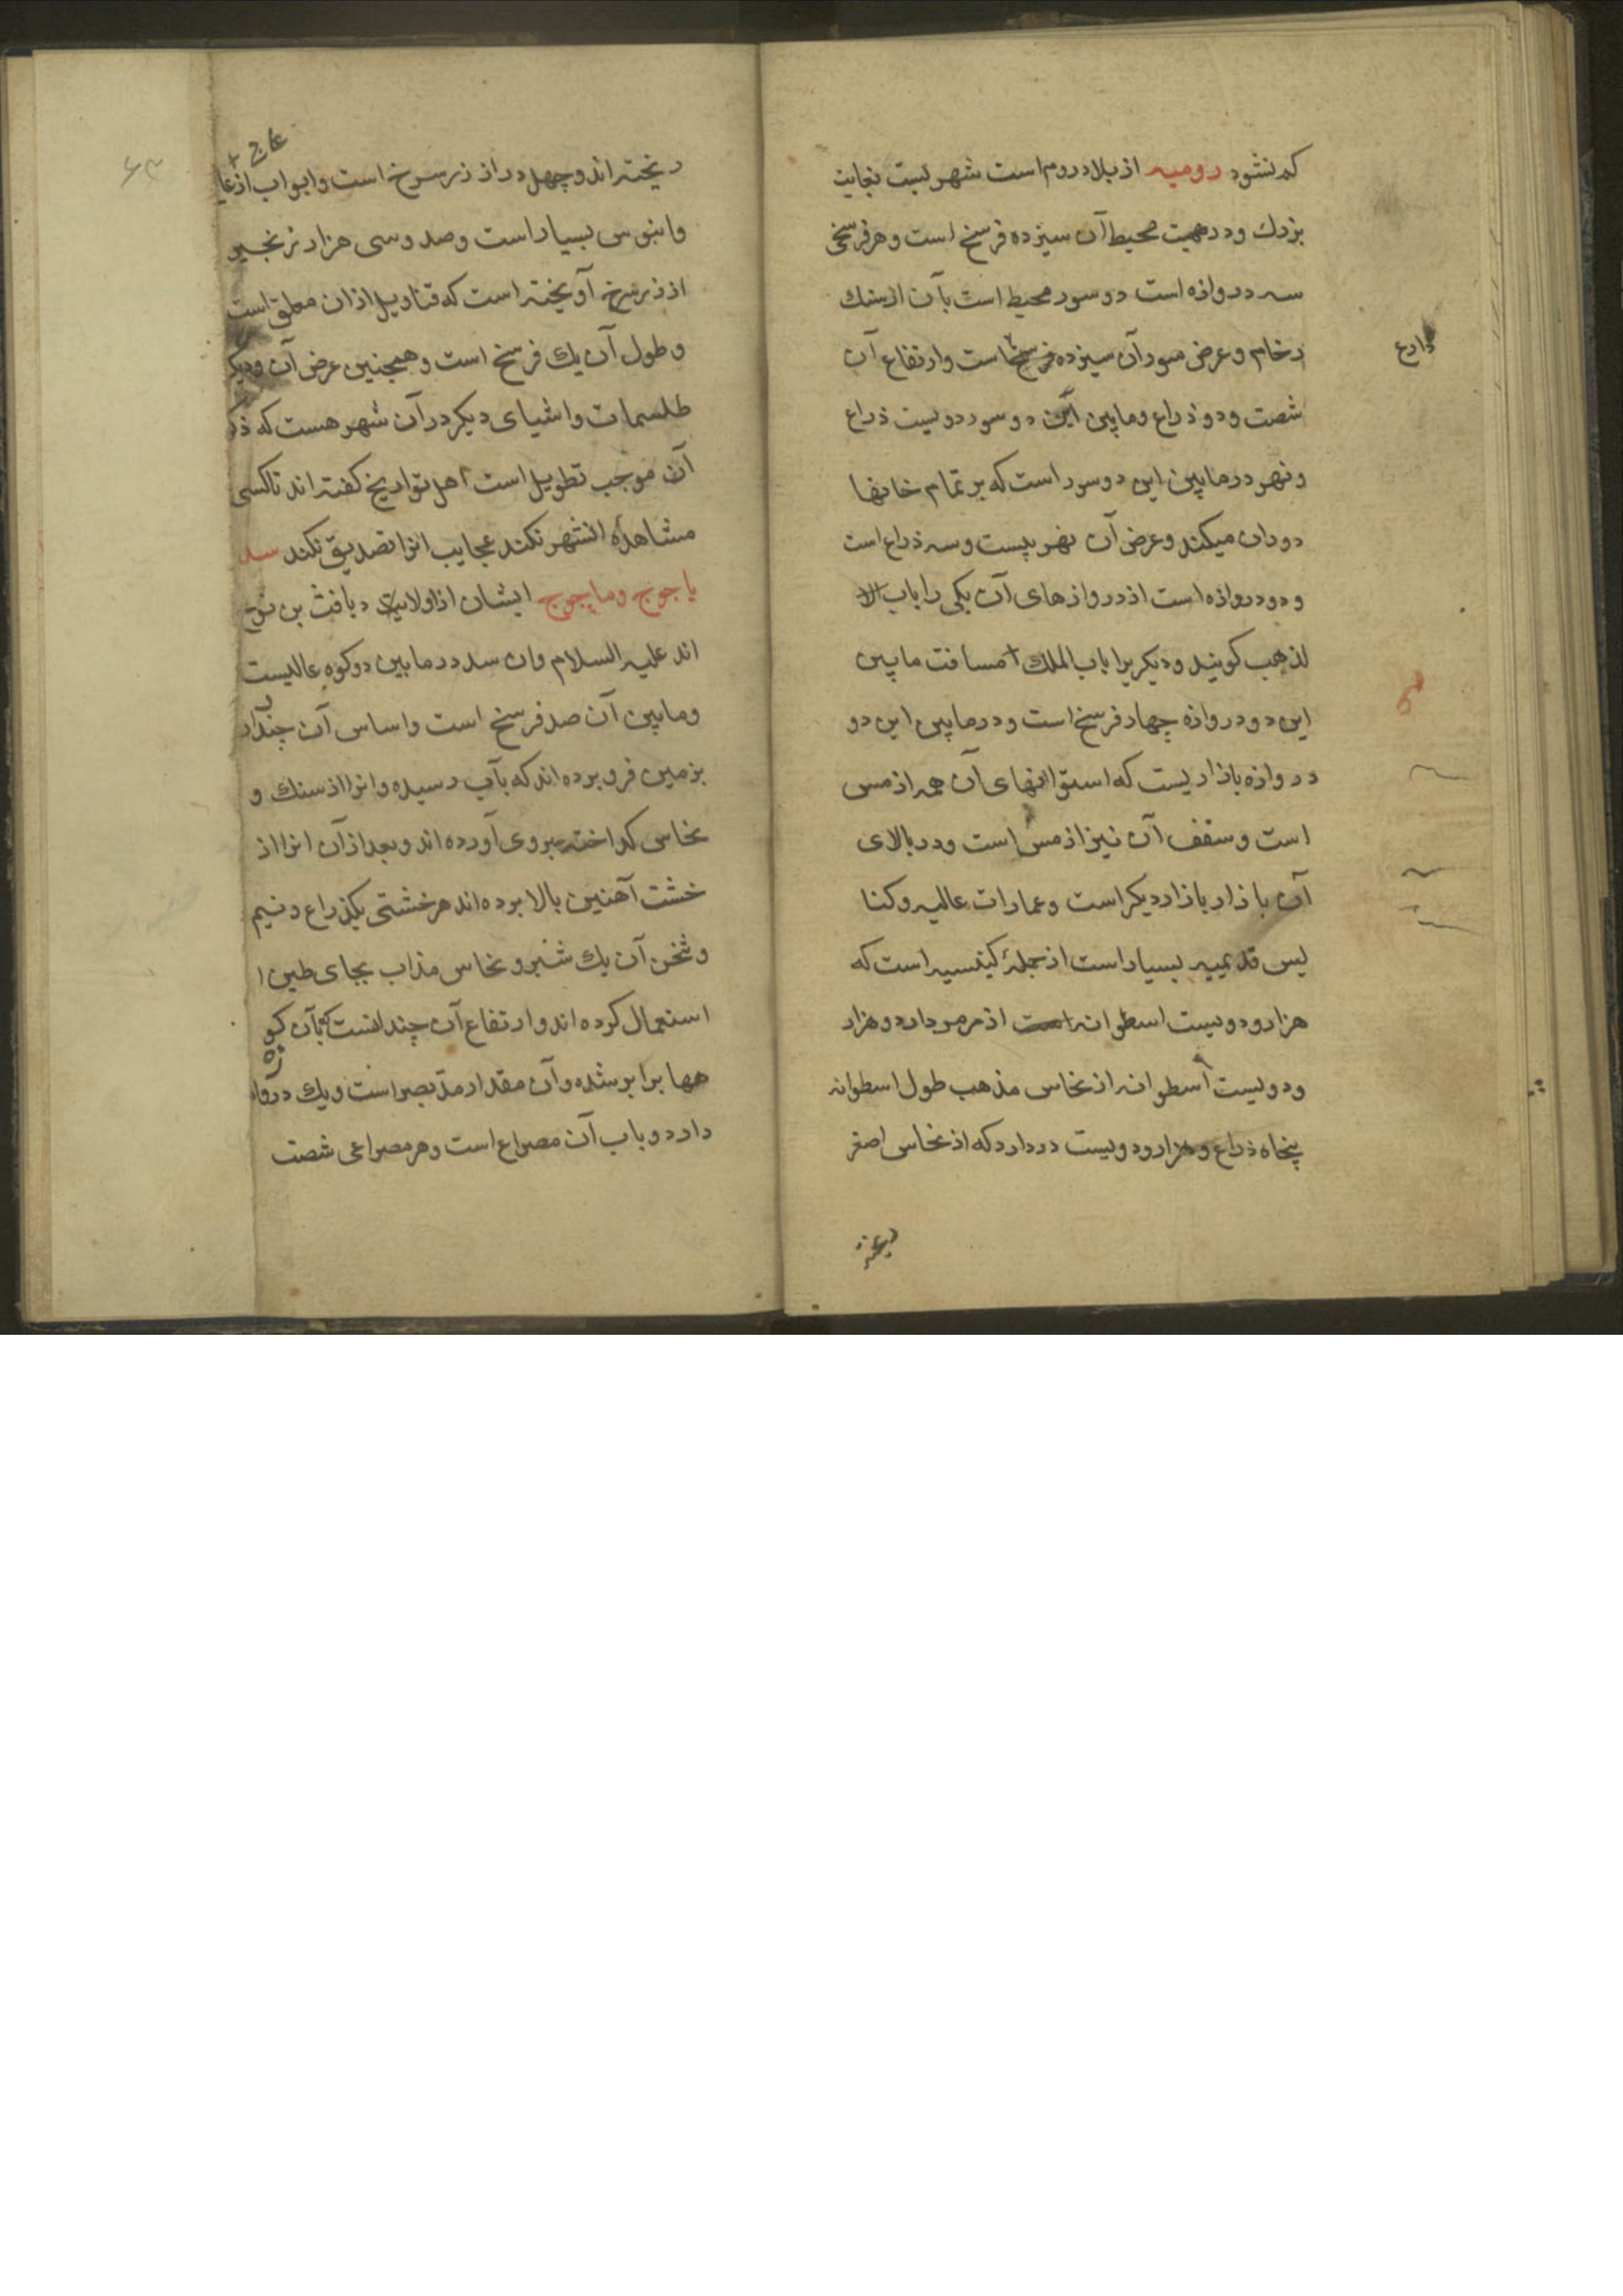 کم نشود رومیه از بلاد روم است شهریست بغایت
بزرك ودر محیط آن سیزده فرسخ است وهر فرسخی
سه دروازه است دو سور محیط است بآن از سنك
رخام وعرض سور آن سیزده فرسخ است وارتفاع آن
ذارع
شصت ودو ذراع ومابین این دو سور دویست ذراع
ونهر در مابین این دو سور است که بر تمام خانها
دوران میکند وعرض آن نهر بیست وسه ذراع است
ودو دروازه است از دروازهای آن یکی را باب الا
لذهب کویند ودیکریرا باب الملك مسافت مابین
این دو دروازه چهار فرسخ است ودر مابین این دو
دروازه بازاریست که استوانهای آن همه از مس
است وسقف آن نیز از مس است ودر بالای
آن بازار بازار دیکر است وعمارات عالیه وکنا
یس قدیمیه بسیار است از جملۀ کینسییه است که
هزار ودویست اسطوانه است از مرمر دارد وهزار
ودویست اسطوانه از نحاس مذهب طول اسطوانه
پنجاه ذراع وهزار ودویست در دارد که از نحاس اصفر
ریخته
ریخته اند وچهل در از زر سرخ است وابواب از عا
عاج
وابنوس بسیار است وصد وسی هزار زنجیر
از زر سرخ آویخته است که قنادیل از ان معلق است
وطول آن یك فرسخ است وهمچنین عرض آن ودیکر
طلسمات واشیای دیکر در آن شهر هست که ذکر
آن موجب تطویل است اهل تواریخ کفته اند تا کسی
مشاهدۀ انشهر نکند عجایب انرا تصدیق نکند سد
یاجوج وماجوج ایشان از اولاد یافث بن نوح
اند علیه السلام وان سد در مابین دو کوه عالیست
ومابین آن صد فرسخ است واساس آن چندان
بزمین فرو برده اند که بآب رسیده وانرا از سنك و
نحاس کداخته بروی آورده اند وبعد از آن انرا از
خشت آهنین بالا برده اند هر خشتی یکذراع ونیم
وثخن آن یك شبر ونحاس مذاب بجای طین ا
استعمال کرده اند وارتفاع آن چندانست که بآن کو
هها برابر شده وآن مقدار مد بصر است ویك دروازه
دارد وباب آن مصراع است وهر مصراعی شصت